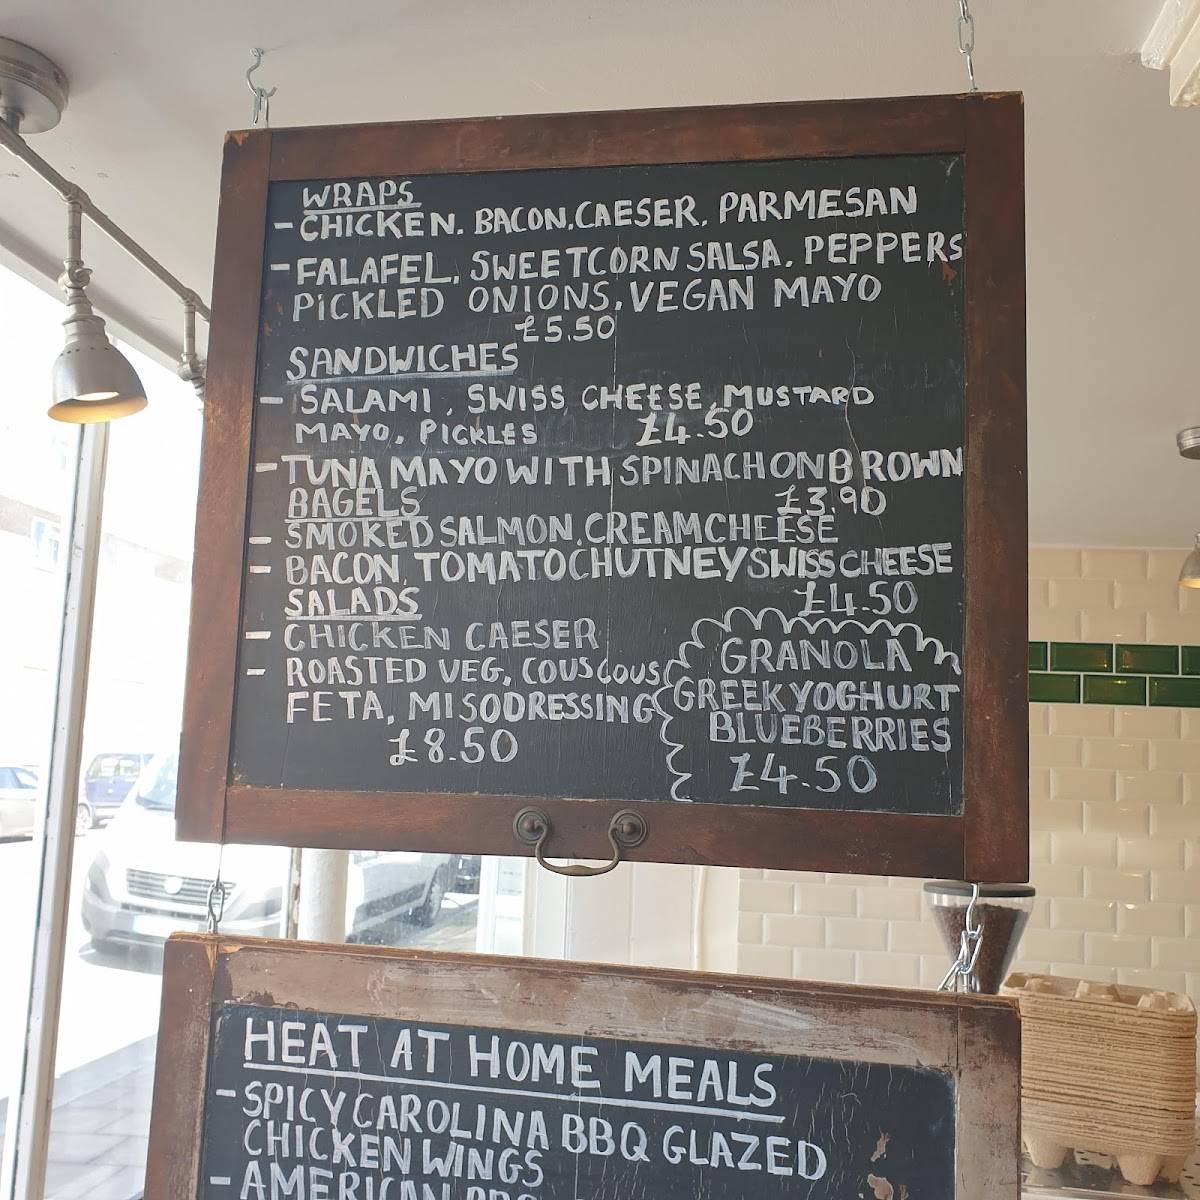 WRAPS
- CHICKEN. BACON, CAESER, PARMESAN
- FALAFEL, SWEETCORN SALSA. PEPPERS
PICKLED ONIONS, VEGAN MAYO
£5.50
SANDWICHES
- SALAMI, SWISS CHEESE, MUSTARD
MAYO, PICKLES £4.50
- TUNA MAYO WITH SPINACH ON BROWN
BAGELS £3.90
- SMOKED SALMON, CREAM CHEESE
- BACON, TOMATO CHUTNEY SWISS CHEESE
£4.50
SALADS
- CHICKEN CAESER
- ROASTED VEG, COUSCOUS
FETA, MISO DRESSING
£8.50
GRANOLA
GREEK YOGHURT
BLUEBERRIES
£4.50
HEAT AT HOME MEALS
- SPICY CAROLINA BBQ GLAZED
CHICKEN WINGS
- AMERICAN